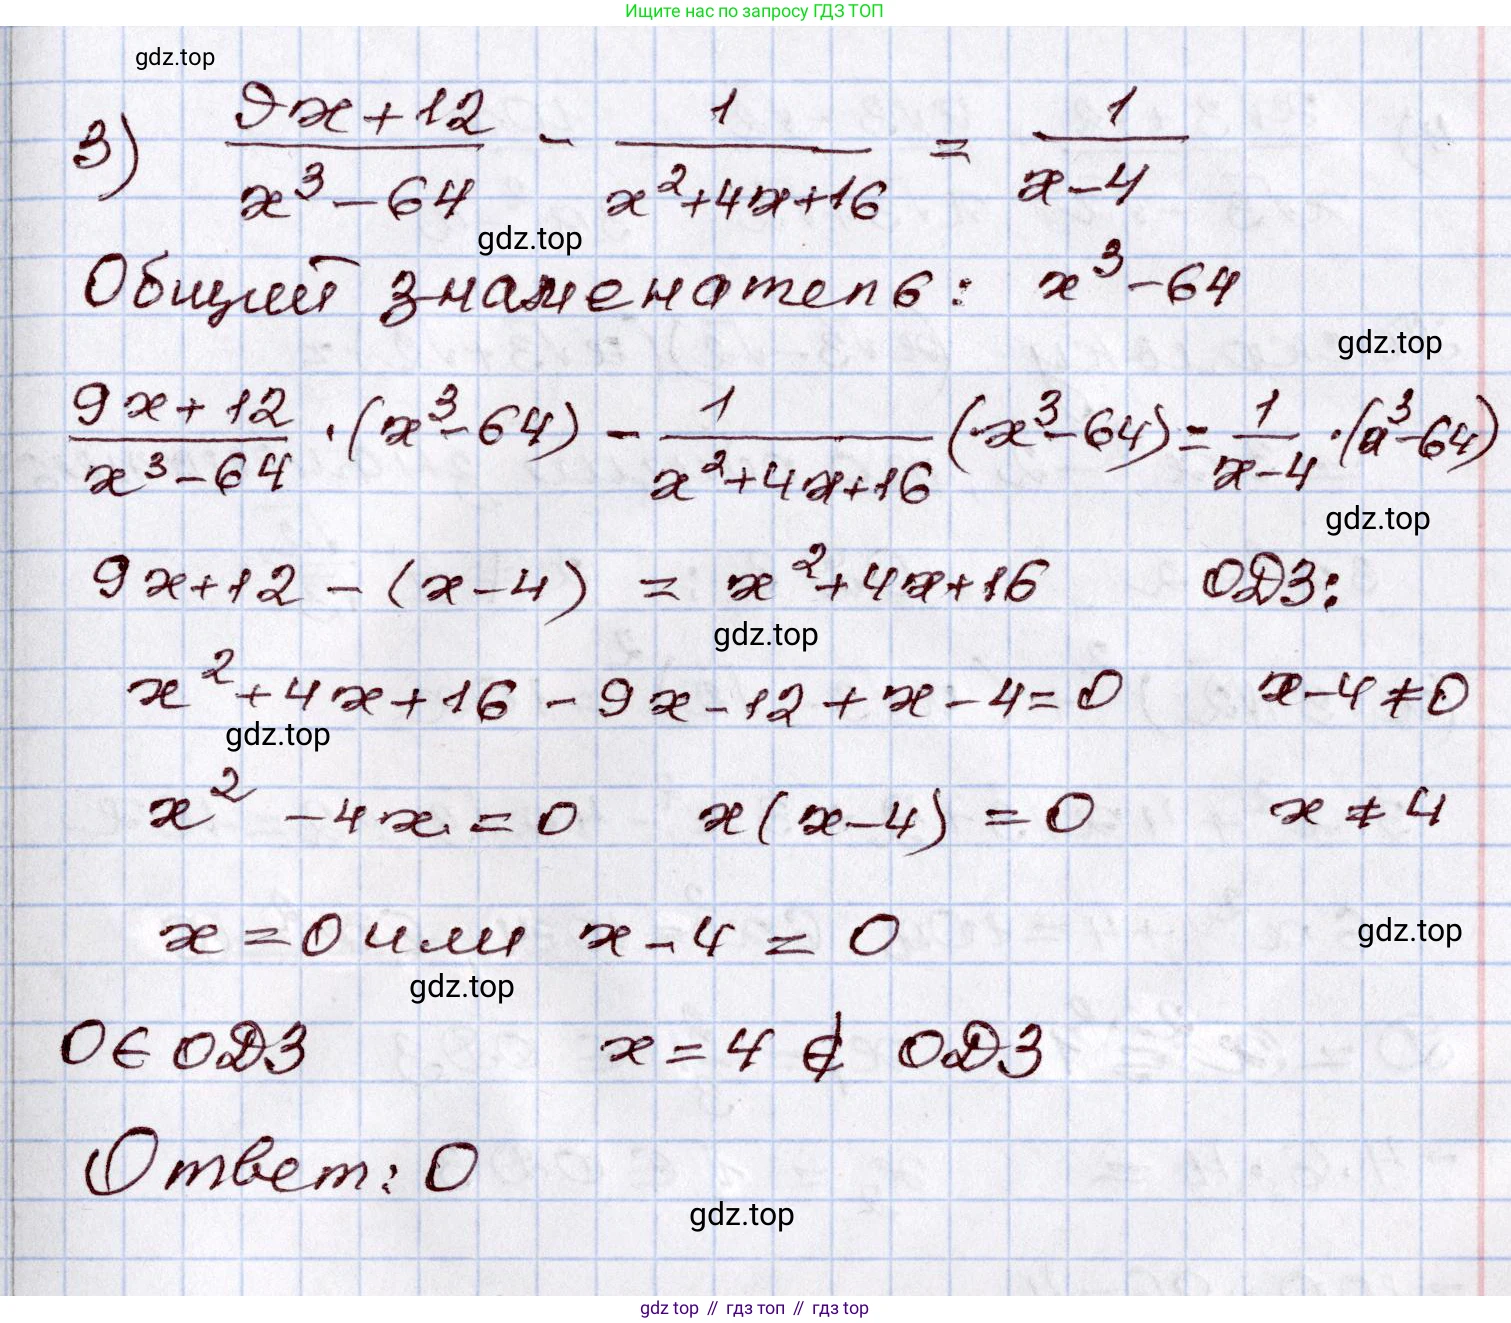 Ищите нас по запросу ГДЗ ТОП
gdz.top
3) (9x+12)/(x³-64) - 1/(x²+4x+16) = 1/(x-4)
gdz.top
Общий знаменатель: x³-64
gdz.top
(9x+12)/(x³-64) · (x³-64) - 1/(x²+4x+16) (x³-64) = 1/(x-4) · (a³-64)
gdz.top
9x+12 - (x-4) = x²+4x+16 ОДЗ:
gdz.top
x²+4x+16 - 9x-12+x-4=0 x-4≠0
gdz.top
x² -4x = 0 x(x-4) = 0 x≠4
x = 0 или x-4 = 0
gdz.top
gdz.top
0 ∈ ОДЗ x = 4 ∉ ОДЗ
Ответ: 0
gdz.top
gdz top // гдз топ // гдз top